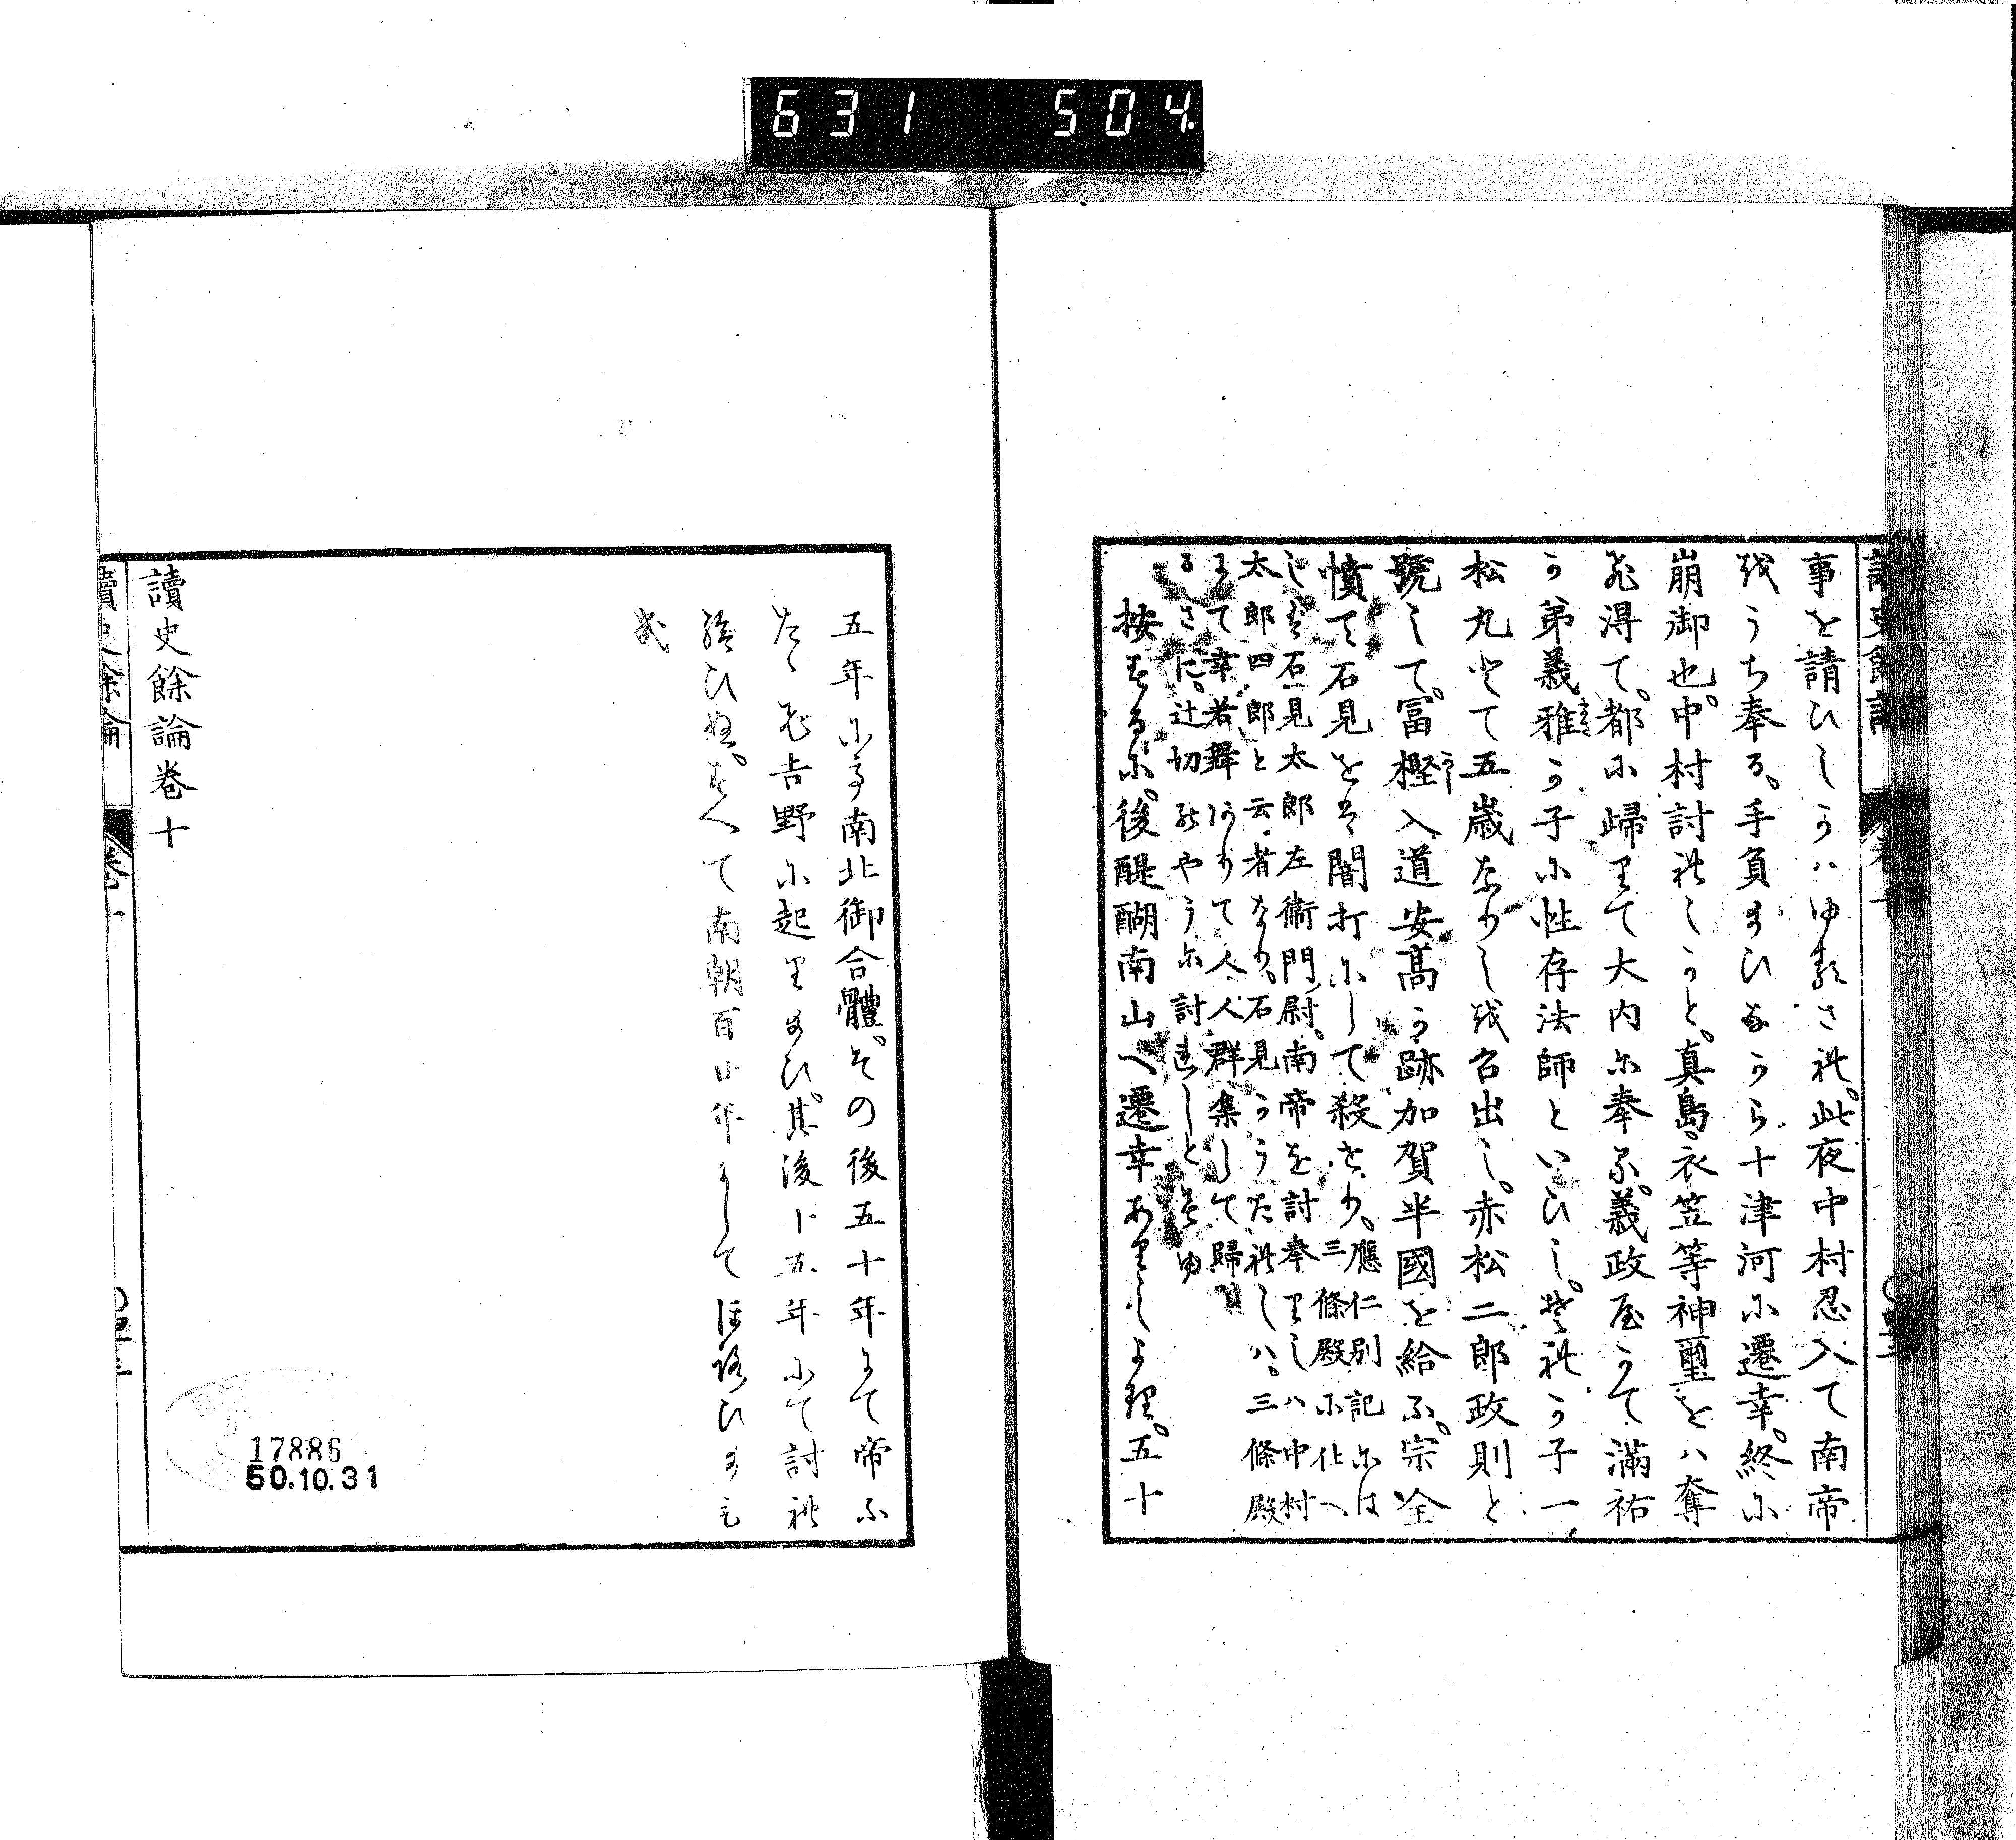 631 504
事を請ひしかハゆるされ。此夜中村忍入て南帝
をうち奉る。手負給ひながら十津河に遷幸。終に
崩御也。中村討れしかと。真島。衣笠等神璽をハ奪
え得て。都に帰りて大内に奉る。義政屋かて満祐
か弟義雅か子に性存法師といひし。それか子一
松丸とて五歳なりしを召出し。赤松二郎政則と
號して。冨樫入道安髙か跡加賀半國を給ふ。宗全
憤て石見をは闇打にして殺せり。應仁別記には
三條殿に仕へ
し石見太郎左衛門尉。南帝を討奉りしハ中村
太郎四郎と云者なり。石見かうたれしハ。三條殿
にて幸若舞ありて人人群集して歸
るさに。辻切のやうに討れしと見ゆ
按するに。後醍醐南山へ遷幸ありしより。五十
五年に高南北御合體。その後五十年にて帝ふ
たゝえ吉野に起り給ひ。其後十五年にて討れ
給ひぬ。すへて南朝百廿年にしてほろひ給ひ
き
讀史餘論卷十
讀史餘論 卷十
17886
50.10.31